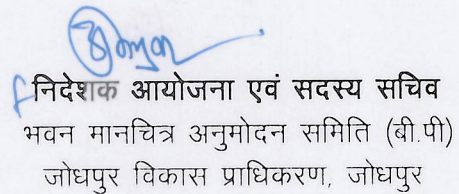 निदेशक आयोजना एवं सदस्य सचिव
भवन मानचित्र अनुमोदन समिति (बी.पी)
जोधपुर विकास प्राधिकरण, जोधपुर